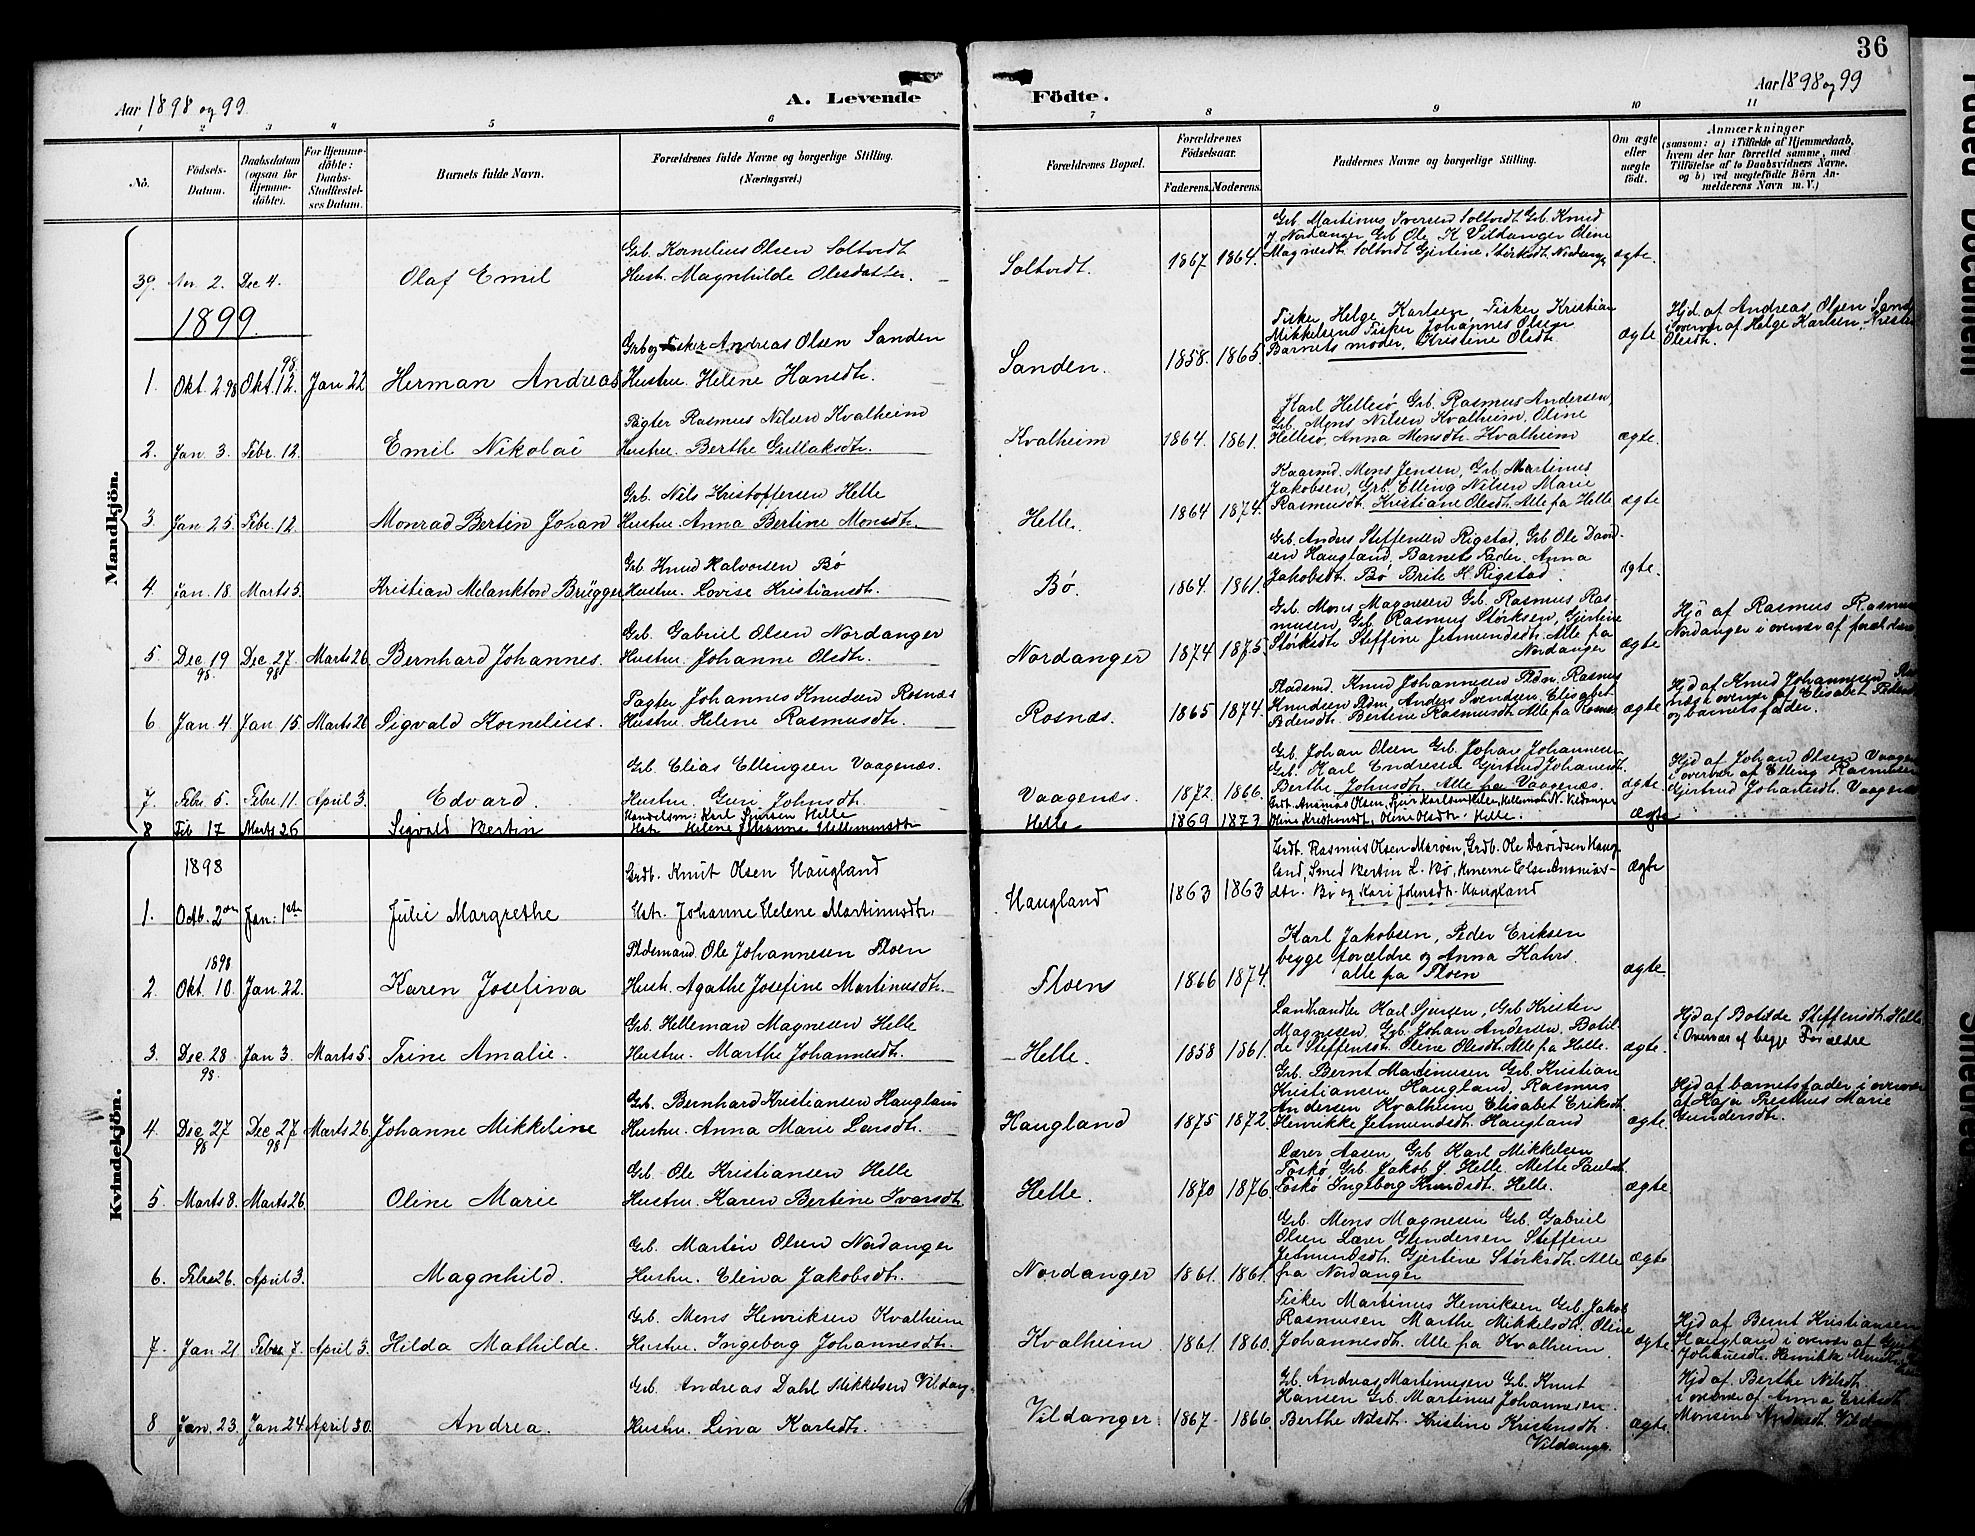 36
Aar 1898 og 99
A. Levende
Födte.
Aar 1898 og 99
1 2 3 4 5 6 7 8 9 10 11
No.
Födsels-Datum.
Daabsdatum (ogsaa for Hjemme-döbte).
For Hjemme-döbte: Daabs-Stadfæstel-ses Datum.
Barnets fulde Navn.
Forældrenes fulde Navne og borgerlige Stilling.
(Næringsvei.)
Forældrenes Bopæl.
Forældrenes Födselsaar.
Faderens. Moderens.
Faddernes Navne og borgerlige Stilling.
Om ægte eller uægte födt.
Anmærkninger
(saasom: a) i Tilfælde af Hjemmedaab, hvem der har forrettet samme, med Tilföielse af to Daabsvidners Navne. og b) ved uægtefödte Börn An-melderens Navn m. V.)
Mandkjön.
39. Nov. 2. Dec 4. Olaf Emil
Grb. Kornelius Olsen Soltvedt
Hustr. Magnhilde Olesdatter.
Soltvedt. 1867 1864.
Grb. Martinus Iversen Soltvedt Grb. Knud
J. Nordanger Grb Ole K Vildanger Oline
Magnesdt. Soltvedt Gjertine Størksdt. Nordanger
ægte.
1899.
1. Okt. 2 98 Okt. 12. 98 Jan 22 Herman Andreas
Grb og Fisker Andreas Olsen Sanden
Hustru. Helene Hansdtr.
Sanden. 1858. 1865.
Fisker Helge Karlsen, Fisker Kristian
Mikkelsen, Fisker Johannes Olsen
Barnets moder, Kristine Olsdt.
ægte
Hjd. af Andreas Olsen Sanden
i overvær af Helge Karlsen
Olesdt.
2. Jan 3. Febr. 12. Emil Nikolai
Pagter Rasmus Nilsen Kvalheim
Hustru. Berthe Gullaksdtr.
Kvalheim 1864. 1861.
Karl Hellesø Grb. Rasmus Andersen,
Grb. Mons Nilsen Kvalheim, Oline
Hellesø, Anna Monsdtr. Kvalheim
ægte.
3. Jan 25. Febr. 12. Monrad Bertin Johan
Grb. Nils Kristoffersen Helle
Hustru. Anna Bertine Monsdtr.
Helle. 1864 1874.
Kaarmd. Mons Jensen, Grb. Martinus
Jakobsen, Grb. Elling Nilsen Marie
Rasmusdt. Kristiane Olesdt. Alle fra Helle
ægte
4. Jan. 18. Marts 5. Kristian Melanktod Brügger
Grb Knud Halvorsen Bø
Hustru. Lovise Kristiansdt.
Bø. 1864. 1861.
Grb. Anders Steffensen Rigstad, Grb Ole David-
sen Haugland, Barnets Fader, Anna
Jakobsdt. Bø Brite H. Rigstad.
ægte.
5 Dec 19 98. Dec 27 98 Marts 26 Bernhard Johannes.
Grb. Gabriel Olsen Nordanger
Hustru. Johanne Olsdtr.
Nordanger 1874 1875.
Grb. Mons Magnesen Grb. Rasmus Ras-
musen, Grb Rasmus Størksen, Gjertine
Størksdt Steffine Jetmundsdt. Alle fra
Nordanger
ægte
Hjd af Rasmus Rasmusen
Nordanger i overvær af forældrene
6 Jan. 4 Jan 15. Marts 26 Sigvald Kornelius.
Pagter Johannes Knudsen Rosnæs
Hustru. Helene Rasmusdtr.
Rosnæs. 1865 1874.
Pladsmd. Knud Johannesen Pldm. Rasmus
Knudsen Pldm. Anders Svendsen, Elisabet
Pedersdt. Bertine Rasmusdt. Alle fra Rosnæs
ægte
Hjd af Knud Johannesen Ros-
næs i overvær af Elisabet Pedersdt.
og barnets fader.
7. Febr. 5. Febr. 11. April 3. Edvard.
Grb. Elias Ellingsen Vaagenæs.
Hustru. Guri Johnsdt.
Vaagenæs. 1872. 1866.
Grb. Johan Olsen Grb. Johan Johannesen
Grb. Karl Endresen Gjertrud Johannesdt.
Berthe Johnsdt. Alle fra Vaagenæs.
ægte.
Hjd af Johan Olsen Vaagenæs
i overvær af Elling Rasmusen
Gjertrud Johannesdt. Vaagenæs
8 Feb 17 Marts 26 Sigvald Bertin
Handelsm: Karl Sjursen Helle
Hstr Helene Johanne Hellemunsdtr
Helle 1869 1873.
Grdb. Ananias Olsen, Sjur Karlsen Helle, Hellemun N. Vildanger
Oline Kristensdt, Oline Olsdt. Helle.
ægte
Kvindekjön.
1898
1. Octb. 2den Jan: 1ste Julie Margrethe
Grdb. Knut Olsen Haugland
Hstr. Johanne Helene Martinusdtr.
Haugland 1863 1863
Grdb. Rasmus Olsen Marøen, Grdb. Ole Davidsen Haug-
land, Smed Bertin L. Bø, Konerne Else Ananias-
dtr. Bø og Kari Johnsdt. Haugland
ægte
1898
2. Okt. 10. Jan. 22. Karen Josefina
Pldsmand Ole Johannesen Floen
Hustr. Agathe Josefine Martinusdt.
Floen 1866 1874.
Karl Jakobsen, Peder Eriksen
begge forældre og Anna Kahrs.
alle fra Floen
ægte
3. Dec. 28 98. Jan 3. Marts 5. Trine Amalie.
Grb. Helleman Magnesen Helle
Hustru. Marthe Johannesdt.
Helle. 1858 1861.
Landhandler Karl Sjursen, Grb Kristen
Magnesen, Grb. Johan Andersen, Botil-
de Steffensdt. Oline Olesdt. Alle fra Helle.
ægte.
Hjd af Botilde Steffensdt. Helle
i Overvær af begge Forældre
4. Dec 27 98 Dec 27 98 Marts 26. Johanne Mikkeline
Grb. Bernhard Kristiansen Haugland
Hustru. Anna Marie Larsdt.
Haugland 1875 1872.
Grb. Bernt Martinusen Grb. Kristian
Kristiansen Haugland, Rasmus
Andersen Kvalheim Elisabet Eriksdt.
Henrikke Jetmundsdt. Haugland
ægte.
Hjd af barnets fader i overvær
af Kaja Marie
Gundersdt.
5 Marts 8. Marts 26. Oline Marie
Grb. Ole Kristiansen Helle
Hustru. Karen Bertine Ivarsdt.
Helle. 1870 1876.
Lærer Aasen, Grb Karl Mikkelsen
Toskø, Grb. Jakob J. Helle. Mette Paulsdt.
Toskø Ingeborg Knudsdt. Helle.
ægte
6. Febr 26. April 3. Magnhild.
Grb. Martin Olsen Nordanger
Hustru. Elina Jakobsdt.
Nordanger 1861. 1861.
Grb. Mons Magnesen Grb. Gabriel
Olsen Lærer Gundersen Steffine
Jetmundsdt. Gjertine Størksdt. Alle
fra Nordanger
ægte
7. Jan 21 Febr 7. April 3. Hilda Mathilde.
Grb. Mons Henriksen Kvalheim
Hustru. Ingeborg Johannesdt.
Kvalheim 1861. 1860.
Fisker Martinus Henriksen Grb. Jakob
Rasmusen Marthe Mikkelsdt. Oline
Johannesdt. Alle fra Kvalheim
ægte
Hjd af Bernt Kristiansen
Haugland i overvær af
Johanesdt. Henrikke
8 Jan. 23. Jan 24. April 30. Andrea.
Grb. Andreas Dahl Mikkelsen Vildang.
Hustru. Lina Karlsdt.
Vildanger 1867. 1866.
Grb. Andreas Martinusen Grb. Knut
Hansen Grb. Martinus Johannesen.
Berthe Nilsdt. Kristine Kristensdt.
Vildanger.
ægte.
Hjd af Berthe Nilsdt.
i overvær af Anna Eriksdt
Monsine Andersdt. Vildanger